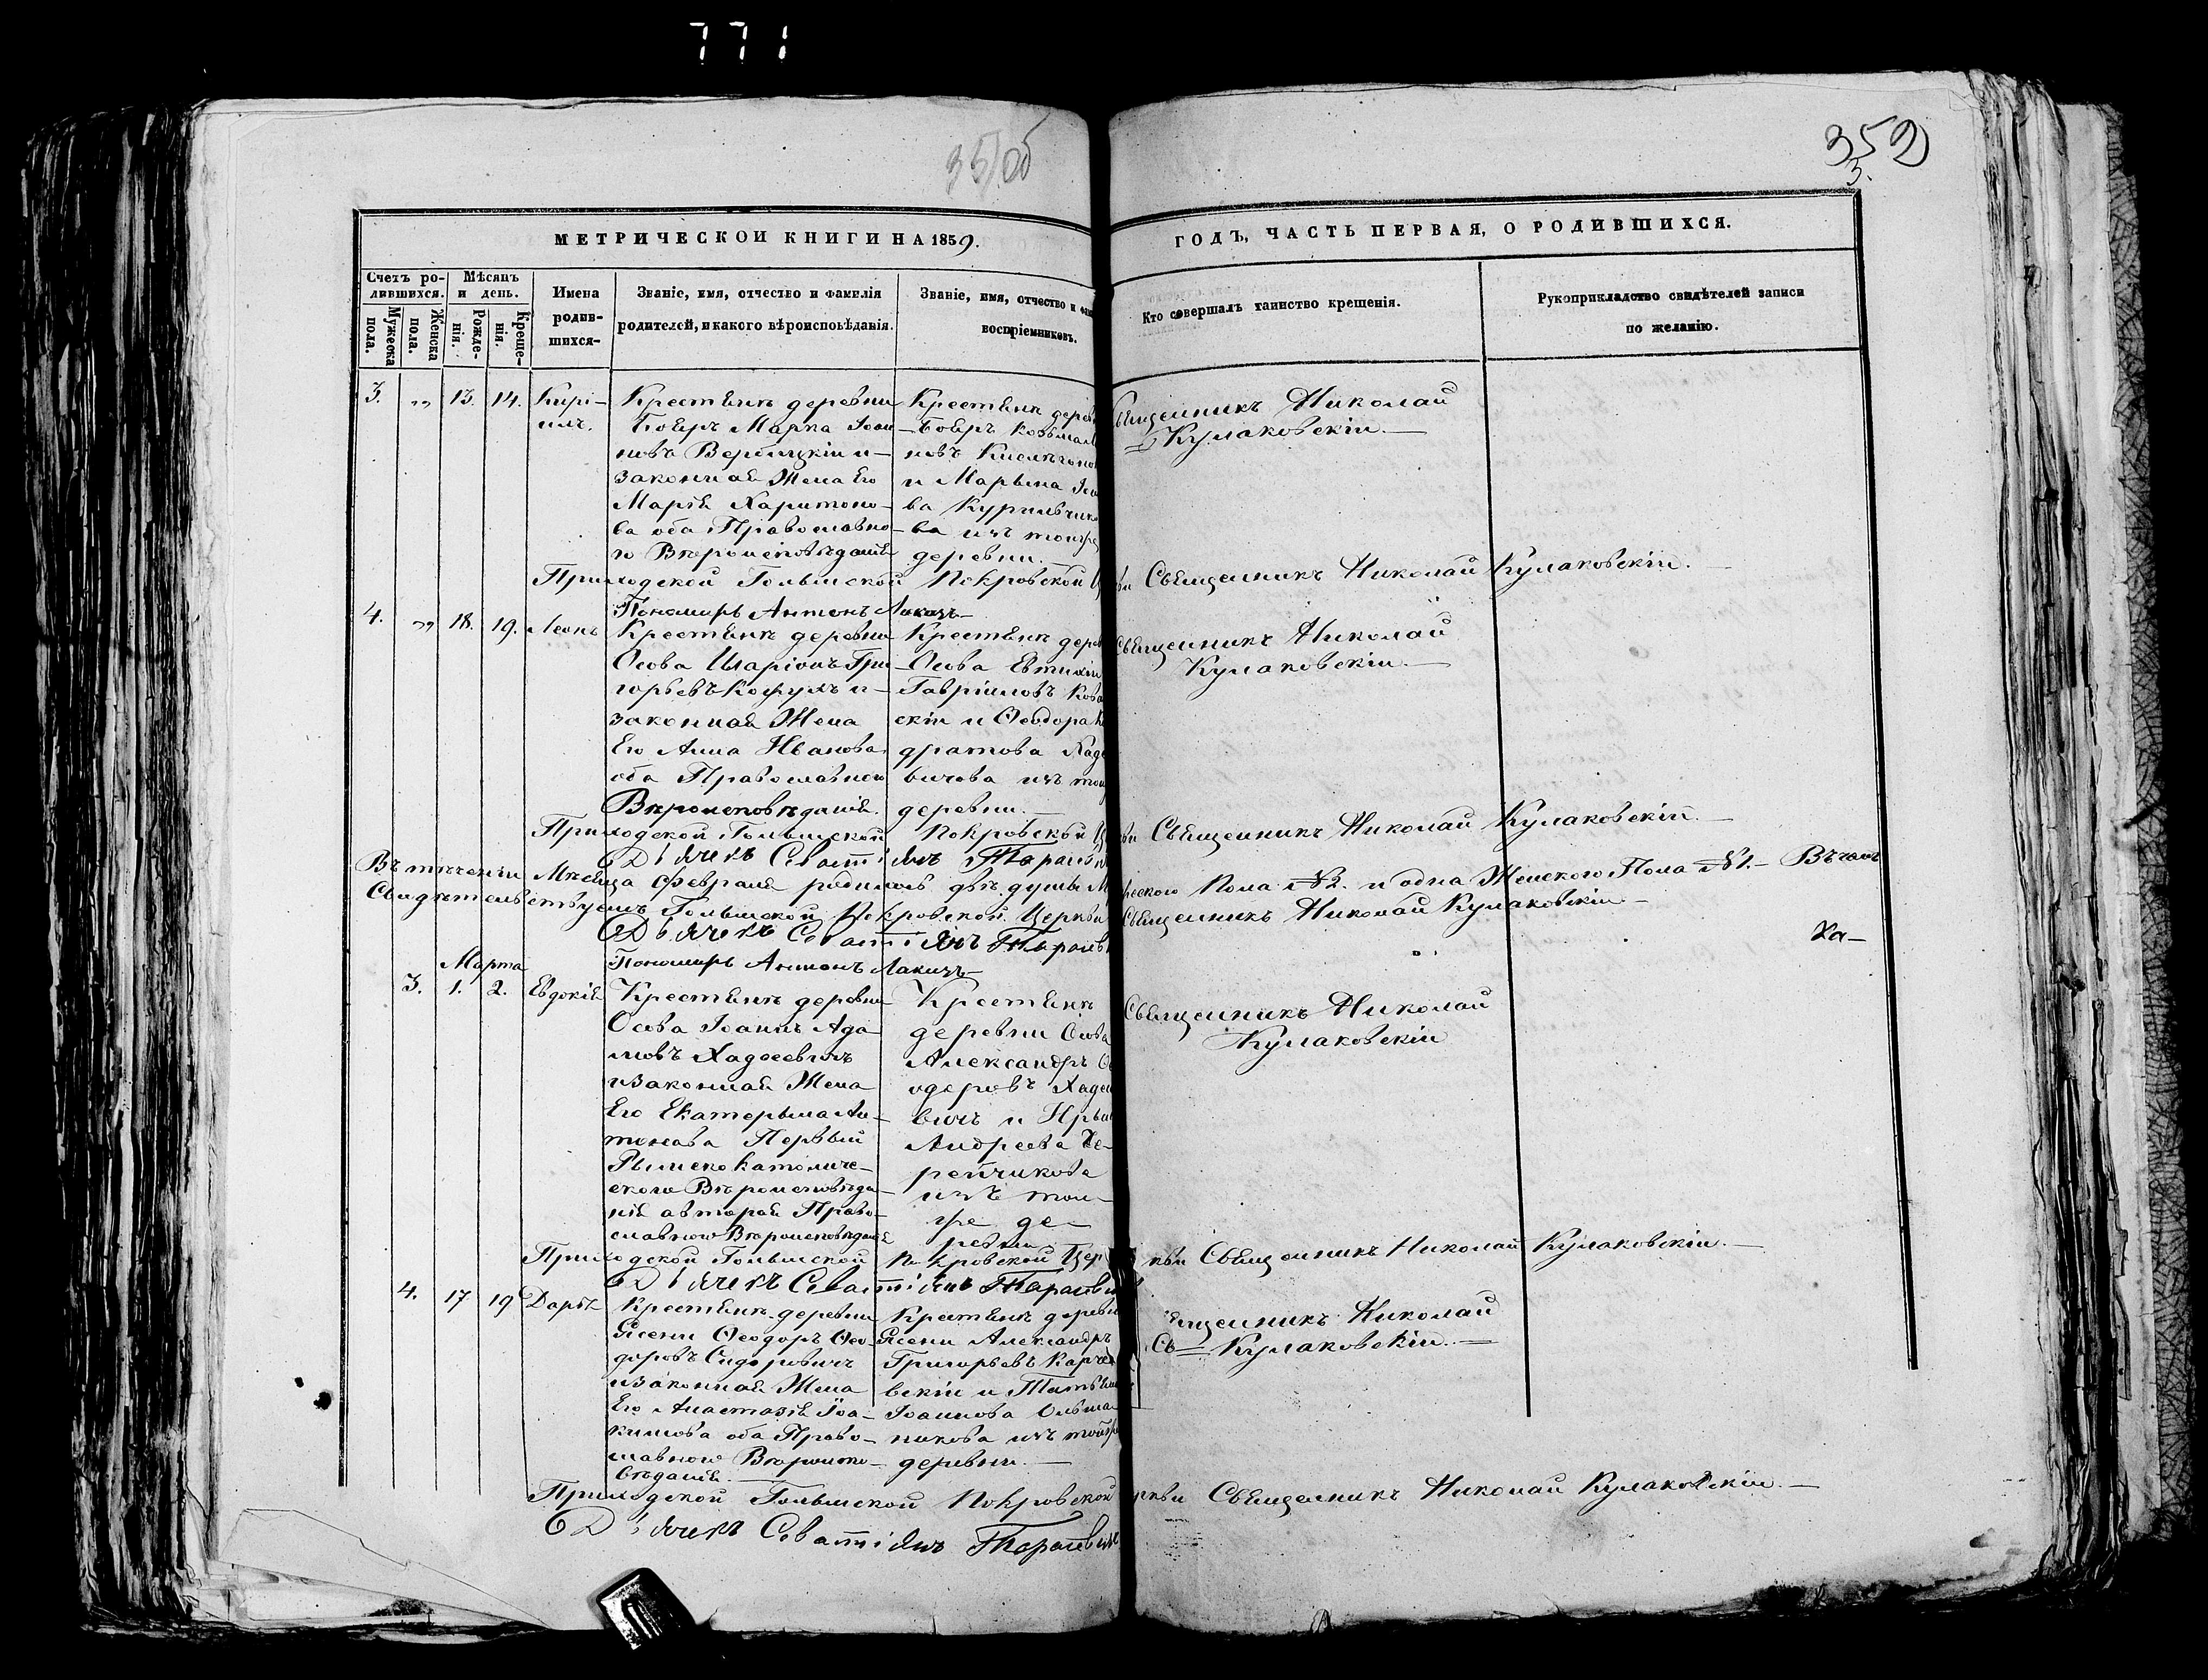 771
351об
352
3.
МЕТРИЧЕСКОИ КНИГИ НА 1859.
ГОДЪ, ЧАСТЬ ПЕРВАЯ, О РОДИВШИХСЯ.
Счетъ ро-
дившихся.
Мужеска
пола.
Женска
пола.
Мѣсяцъ
и день.
Рожде-
нія.
Креще-
нія.
Имена
родив-
шихся-
Званіе, имя, отчество и фамилія
родителей, и какого вѣроисповѣданія.
Званіе, имя, отчество и фам
воспріемниковъ.
Кто совершалъ таинство крещенія.
Рукоприкладство свидѣтелей записи
по желанію.
3. „ 13. 14. Кири-
илъ.
Крестьянъ деревни
Бояръ Марка Іоан
новъ Вербицкіи и-
законная Жена Его
Марія Харитоно-
ва оба Православно-
го Вѣроисповѣданія
Крестьянъ дерев
-Бояръ
новъ
и Марьяна
ва
ва изъ
деревни.
Священникъ Николай
Кулаковскіи.-
Приходской Голынской Покровской Ц
ви Священникъ Николай Кулаковскіи.-
Пономарь Антонъ Лакизъ-
4. „ 18. 19. Леонъ
Крестьянъ деревни
Осова Иларіонъ Гри
горьевъ Кожухъ и-
законная Жена
Его Анна Иванова
оба Православнаго
Вѣроисповѣданія.
Крестьянъ дерев
-Осова Евтихіи
Гавріиловъ Кова
скіи и Ѳеодора К
дратова Хаде
вичова изъ той
деревни.-
Священникъ Николай
Кулаковскіи.-
Приходской Голынской Покровской Ц
ви Священникъ Николай Кулаковскіи.-
Дьячекъ Севастіянъ Тараневи
Въ теченіи Мѣсяца Февраля родилось двѣ души М
жескаго Пола №2. и одна Женского Пола №1.- Въ чемъ
Свидѣтельствуемъ Голынской Покровской Церкви
Священникъ Николай Кулаковскіи-
Дьячекъ Севастіянъ Таранев
Ха-
Пономарь Антонъ Лакизъ-
Марта
3. 1. 2. Евдокія
Крестьянъ деревни
Осова Іоаннъ Ада
мовъ Хадосевичъ
и законная Жена
Его Екатерына Ан-
тонова Первый
Рымско Католиче-
ского Вѣроисповѣда-
нія а вторая Право-
славного Вѣроисповѣданія
Крестьянъ
деревни Осова
Александръ Ѳе
одоровъ Хадосе
вичъ и Ирын
Андреева Ве-
рейчикова
изъ той-
же де-
ревни
Священникъ Николай
Кулаковскіи
Приходской Голынской Покровской Цер
кви Священникъ Николай Кулаковскіи.-
Дьячекъ Севастіянъ Тараневи
4. 17 19 Дарія
Крестьянъ деревни
Ясени Ѳеодоръ Ѳео
доровъ Сидоровичъ
и законная Жена
Его Анастазія Іоа-
кимова оба Право-
славного Вѣроиспо-
вѣданія.-
Крестьянъ деревни
Ясени Александръ
Григорьевъ Карче
вскіи и Татьяна
Іоаннова Ольша
никова изъ тойже
деревни.-
Священникъ Николай
Кулаковскіи.-
Приходской Голынской Покровской
ркви Священникъ Николай Кулаковскіи.-
Дьячекъ Севастіянъ Тараневич